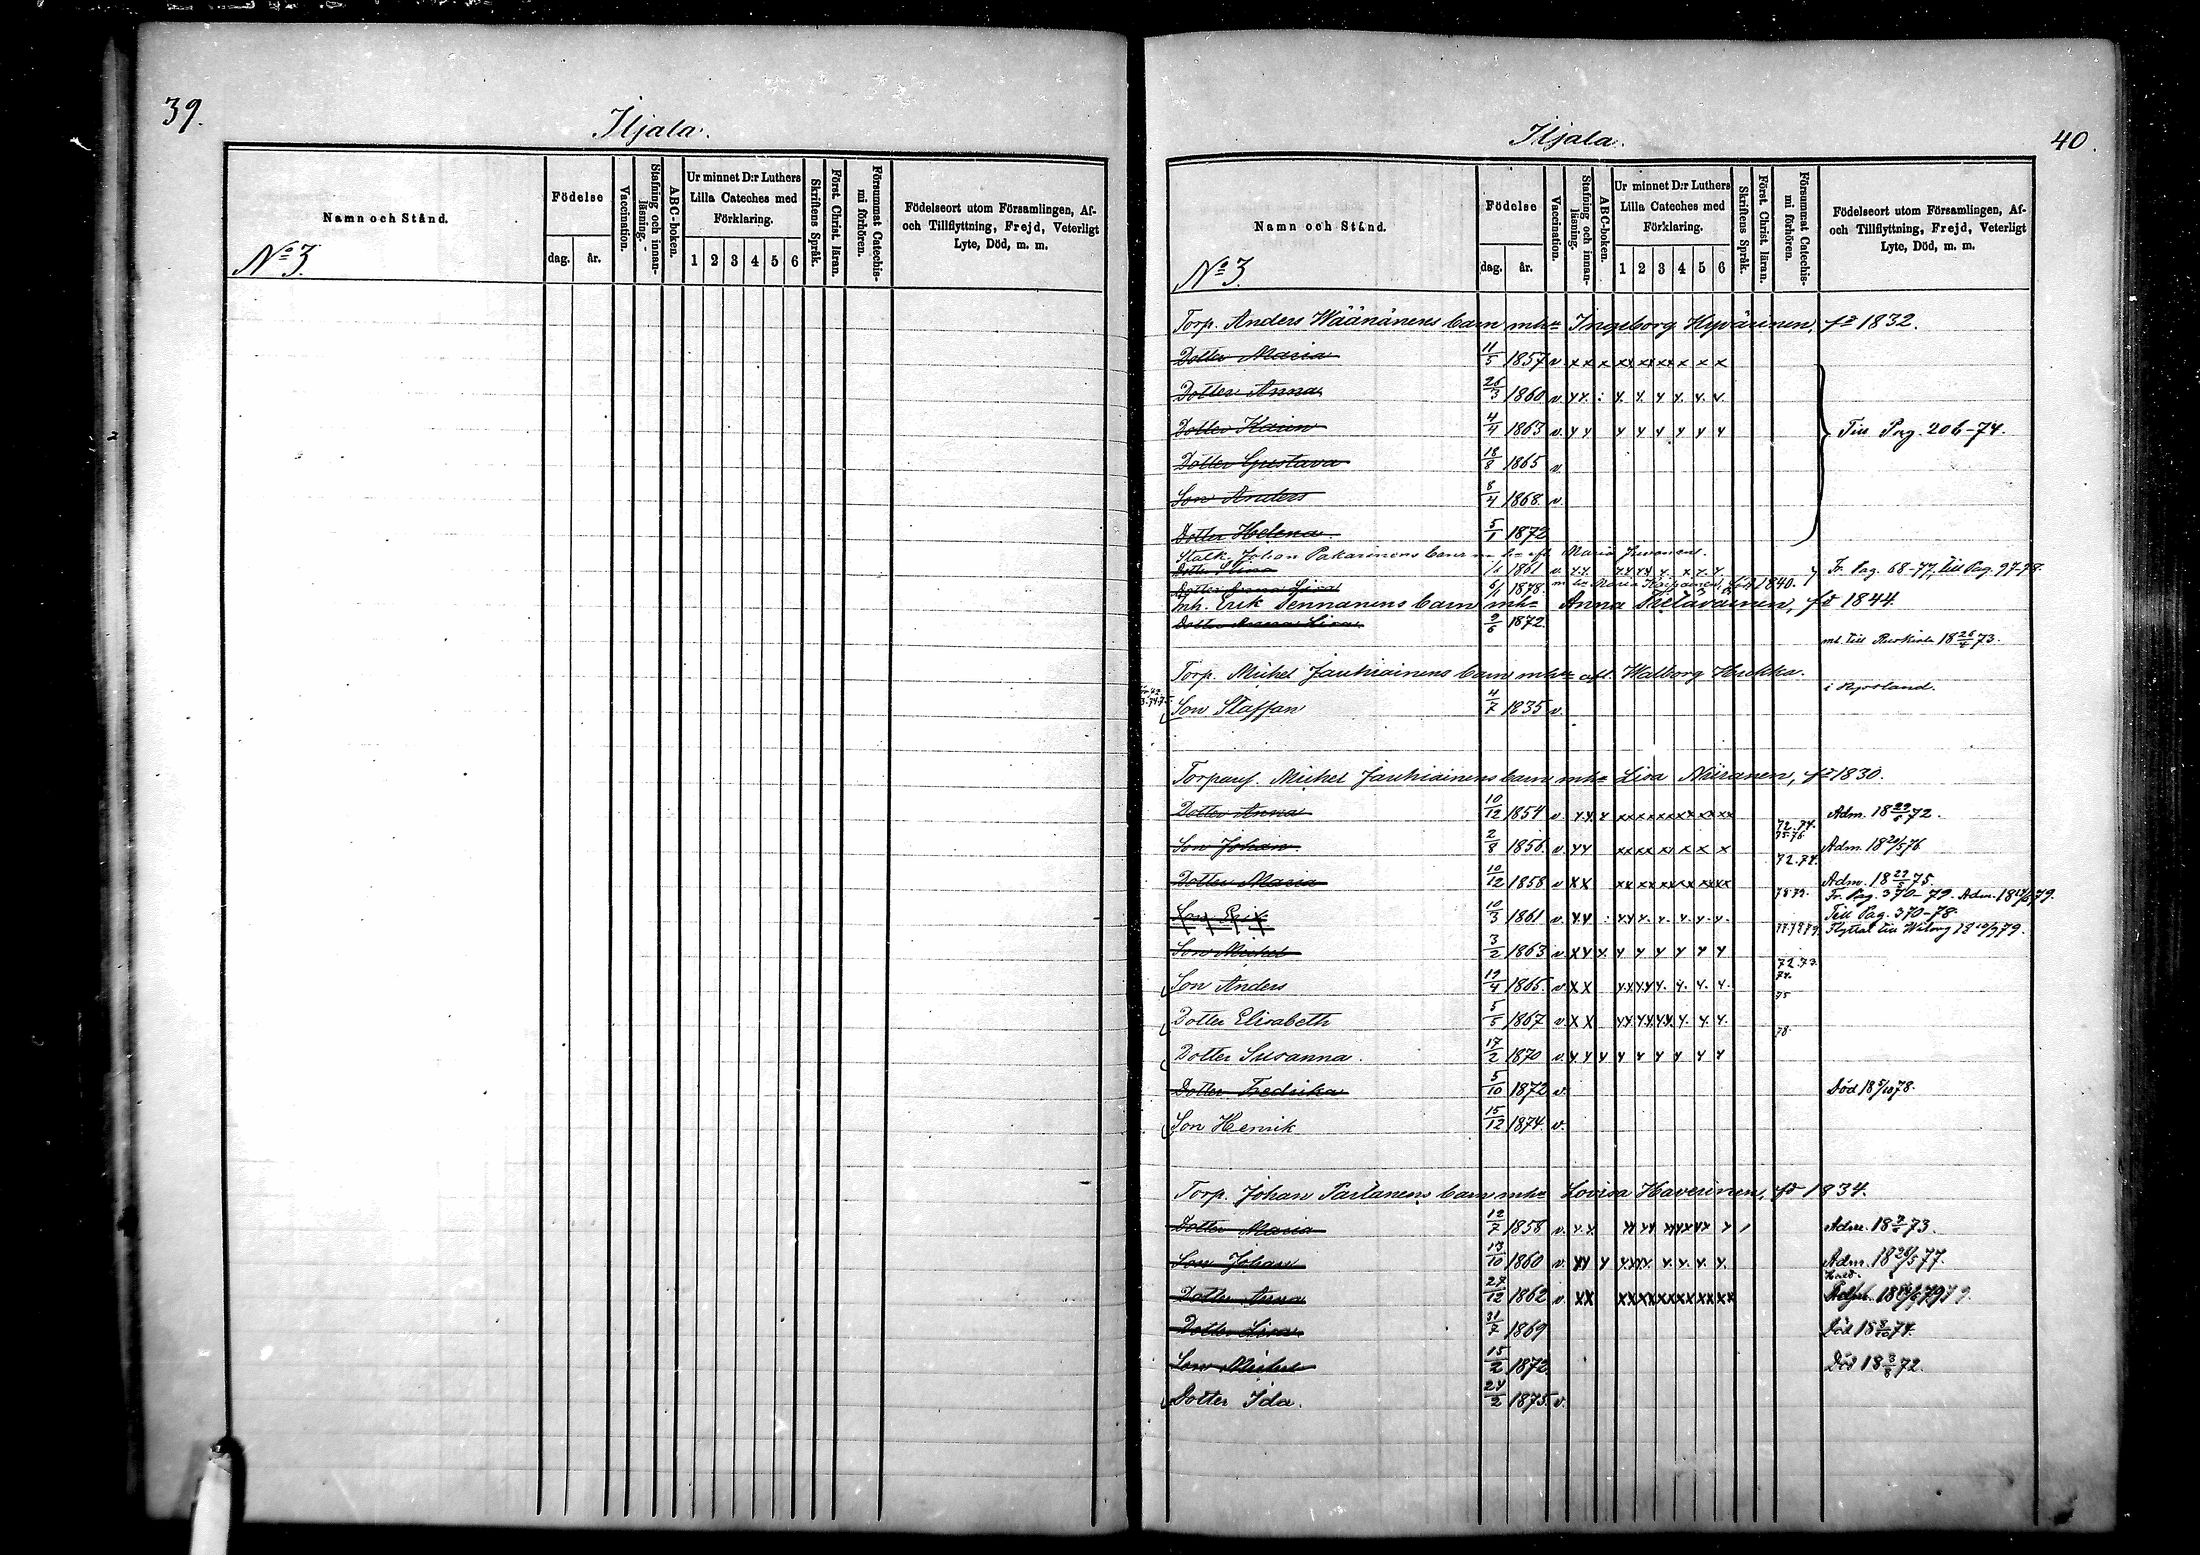 39.
Iljala.
Namn och Stånd.
Födelse
dag. år.
Vaccination.
Stafning och innan-läsning.
ABC-boken.
Ur minnet D:r Luthers Lilla Cateches med Förklaring.
1 2 3 4 5 6
Skriftens Språk.
Först. Christ. läran.
Försummat Catechis-mi förhören.
Födelseort utom Församlingen, Af- och Tillflyttning, Frejd, Veterligt Lyte, Död, m. m.
No 3.
Iljala.
40.
Namn och Stånd.
Födelse
dag. år.
Vaccination.
Stafning och innan-läsning.
ABC-boken.
Ur minnet D:r Luthers Lilla Cateches med Förklaring.
1 2 3 4 5 6
Skriftens Språk.
Först. Christ. läran.
Försummat Catechis-mi förhören.
Födelseort utom Församlingen, Af- och Tillflyttning, Frejd, Veterligt Lyte, Död, m. m.
No 3.
Torp. Anders Wäänänens barn mhu Ingeborg Hyvärinen, fd 1832.
Dotter Maria 11/5 1857 v x x x xx xx xx x x x
Dotter Anna 26/3 1860 v. y y. : y. y. y y. y. y.
Dotter Karin 4/4 1863 v. y y y y y y y y Till Pag. 206-74.
Dotter Gustava 18/8 1865 v.
Son Anders 8/4 1868 v.
Dotter Helena 5/1 1872
Stalk. Johan Pakarinens barn Maria
Dotter Stina 1/1 1861 v. Fr. Pag. 68-77, till Pag. 97-78
Dotter Lisa 6/1 1878. Maria född 1840.
mh. Erik Tennanens barn mhu Anna fd 1844.
Dotter Anna Lisa 9/6 1872.
mb. till 18 26/4 73.
Torp. Michel Jauhiainens barn mhu afl. Walborg Huhka.
i Ryssland.
Son Staffan 4/7 1835 v.
Torparf. Michel Jauhiainens barn mhu Lisa Niiranen, fd 1830.
Dotter Anna 10/12 1854 v y y. y xx xx xx xx xx xx Adm. 18 72.
Son Johan 2/8 1856. v. y y xx xx x x x 72.74. 75.76. Adm. 18 76
Dotter Maria 10/12 1858 v x x xx xx xx xx xx xx 72.74. Adm. 18 75.
Son Erik 10/3 1861 v. y y : 78 79. Fr. Pag. 370-79. Adm. 18 79.
Till Pag. 370-78.
Son Michel 3/2 1863 v. x y y. y y y y y y 77.78 79. Flyttat till Wiborg 18 79.
Son Anders 19/4 1865. v. x x 72.73. 74.
Dotter Elisabeth 5/5 1867 v x x 75
Dotter Susanna. 17/2 1870 v. y. y y y y y y y y 78.
Dotter Fredrika 5/10 1872 v. Död 18 5/10 78.
Son Henrik 15/12 1874 v.
Torp. Johan Partanens barn mhu Lovisa Haverinen, fd 1834.
Dotter Maria 12/7 1858 v. y. y. Adm. 18 73.
Son Johan 13/10 1860 v. xy y Adm. 18 26/5 77.
Dotter Anna 27/12 1862 v x x xx xx xx xx xx xx
Dotter Lisa 31/7 1869 Död 18 74.
Son Michel 15/2 1872 Död 18 72.
Dotter Ida. 24/2 1875. v.